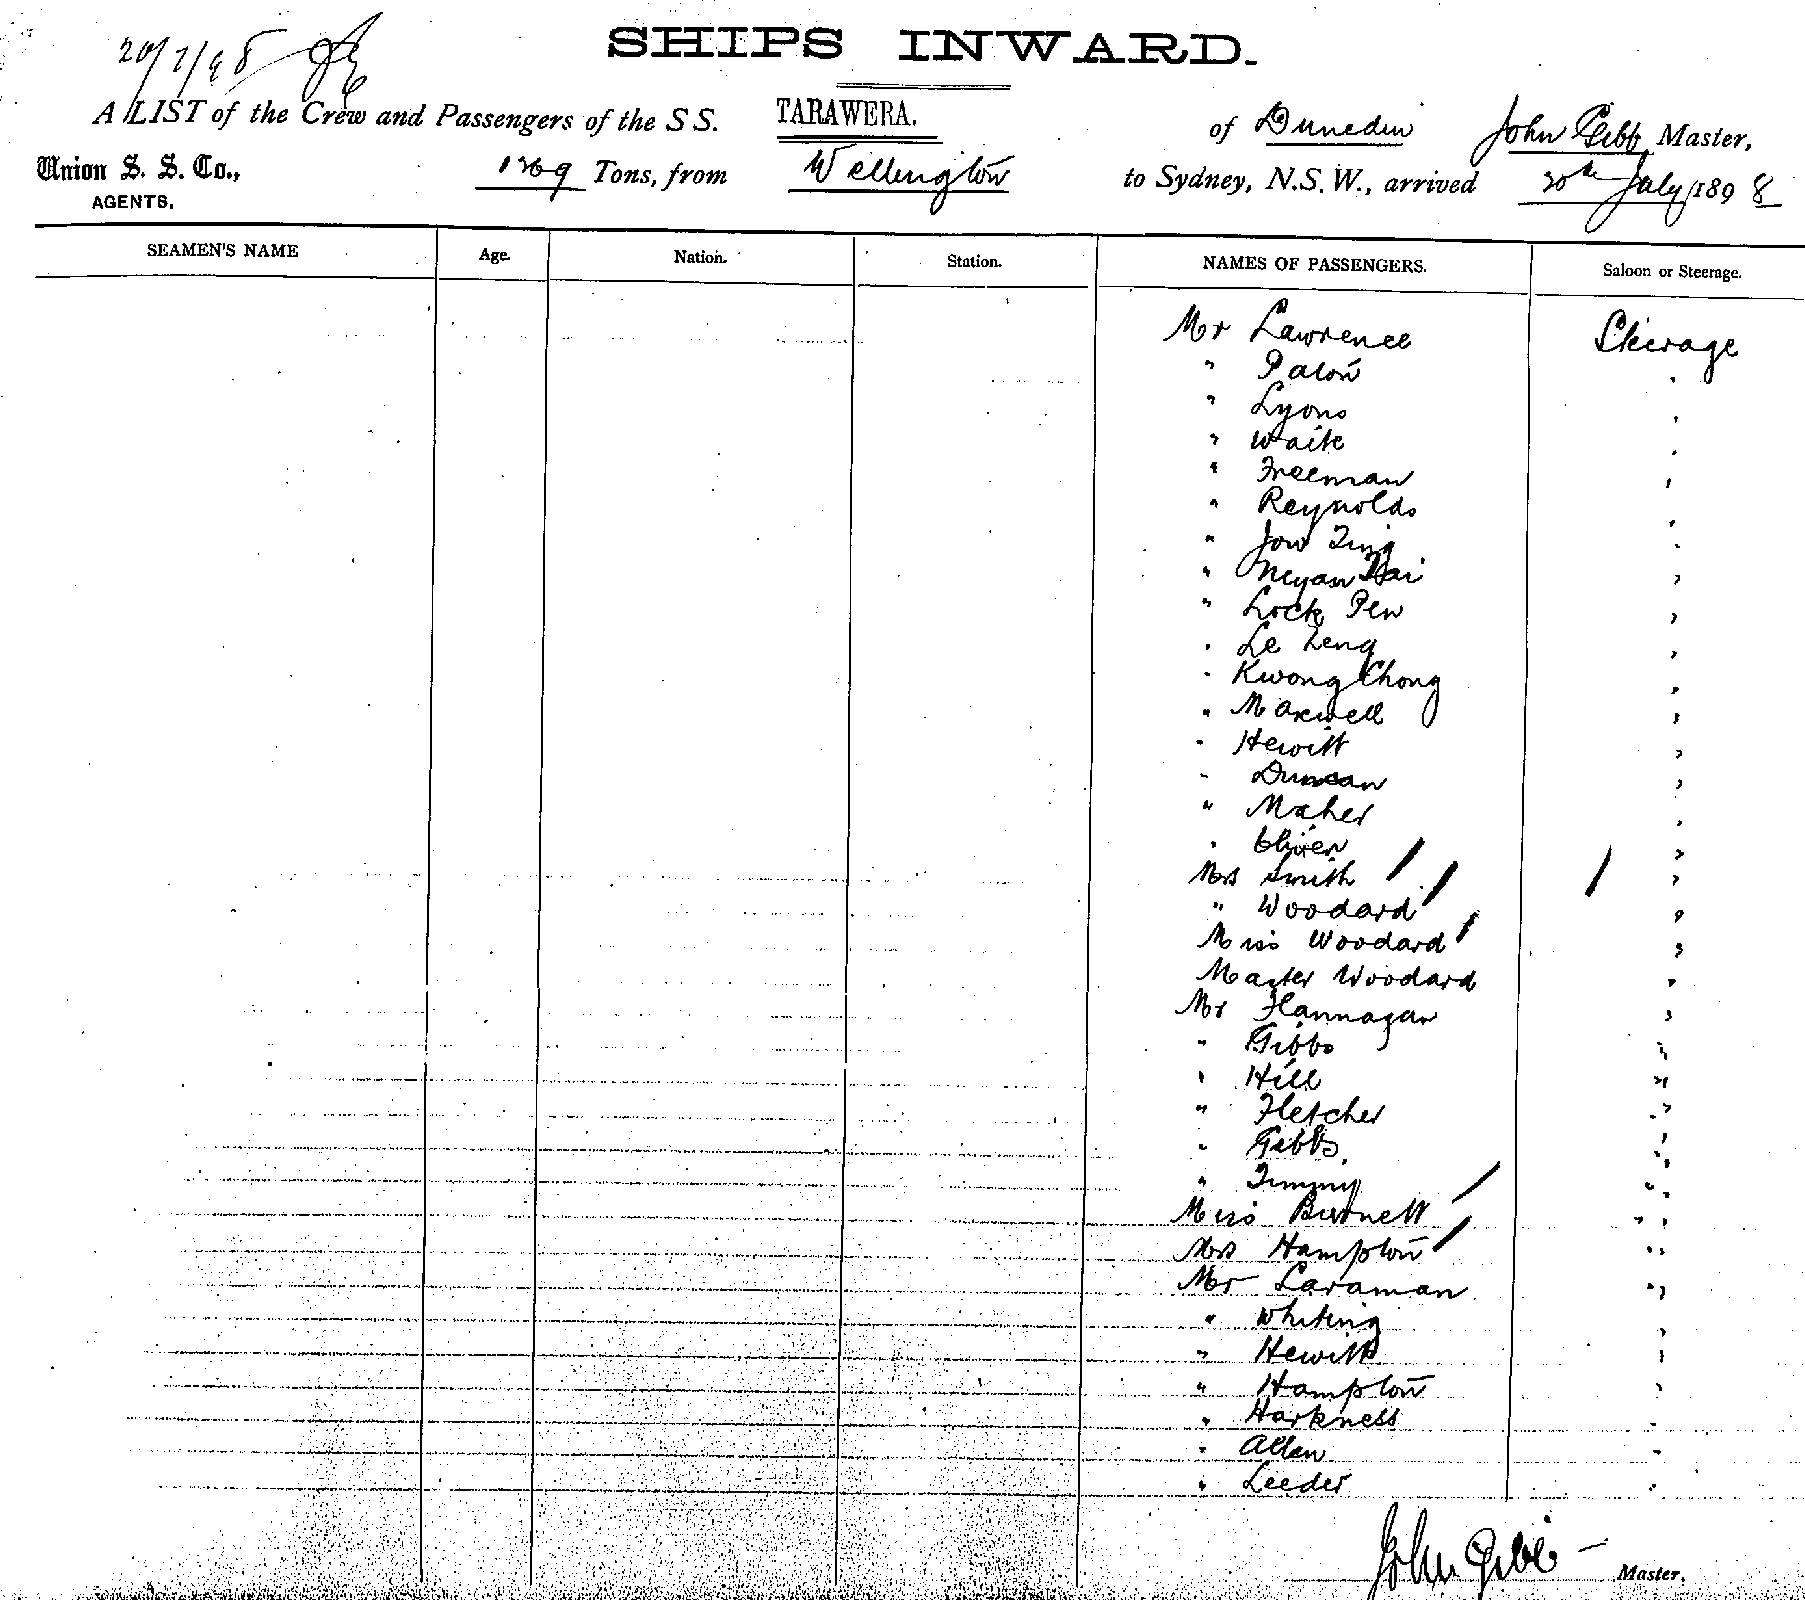 20/7/98
SHIPS INWARD.
A LIST of the Crew and Passengers of the S S. TARAWERA. of Dunedin John Gibb Master,
Union S. S. Co., 1269 Tons, from Wellington to Sydney, N.S.W., arrived 20th July 1898
AGENTS.
SEAMEN'S NAME Age. Nation. Station. NAMES OF PASSENGERS. Saloon or Steerage.
Mr Lawrence Steerage
" Paton "
" Lyons "
" Waite "
" Freeman "
" Reynolds "
" Jow Ting "
" Hai "
" Lock Pen "
" Le "
" Kwong Chong "
" Maxwell "
" Hewitt "
" Duncan "
" Maher "
" Oliver "
Mrs Smith "
" Woodard "
Miss Woodard "
Master Woodard "
Mr Flannagan "
" Gibbs "
" Hill "
" Fletcher "
" Gibbs "
" "
Miss Burnett "
Mrs Hampton "
Mr Laraman "
" Whiting "
" Hewitt "
" Hampton "
" Harkness "
" Allen "
" Leeder "
John Gibb Master.